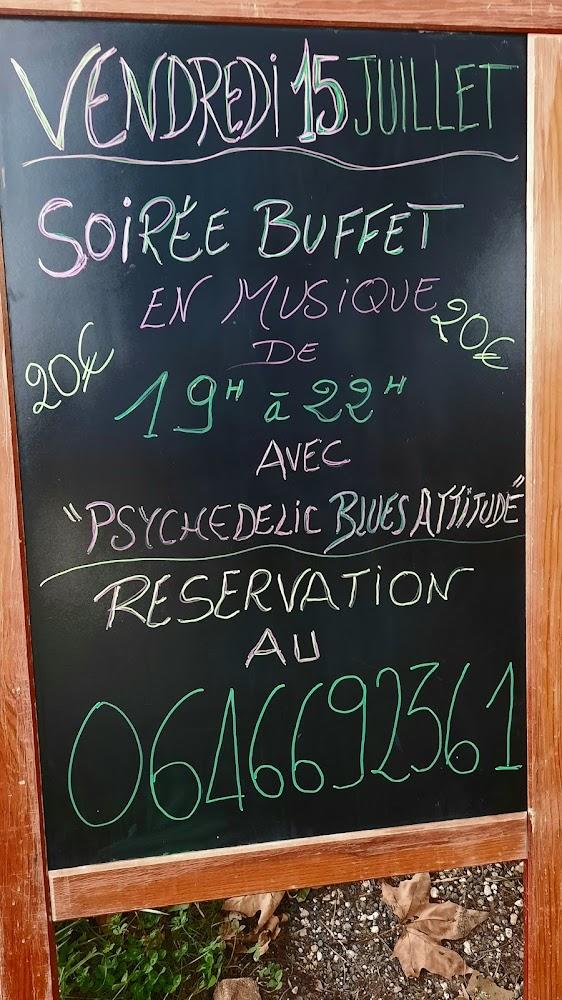 VENDREDI 15 JUILLET
SOIRÉE BUFFET
EN MUSIQUE
20€
20€
DE
19H à 22H
AVEC
"PSYCHEDELIC BLUES ATTITUDE"
RESERVATION
AU
0646692361